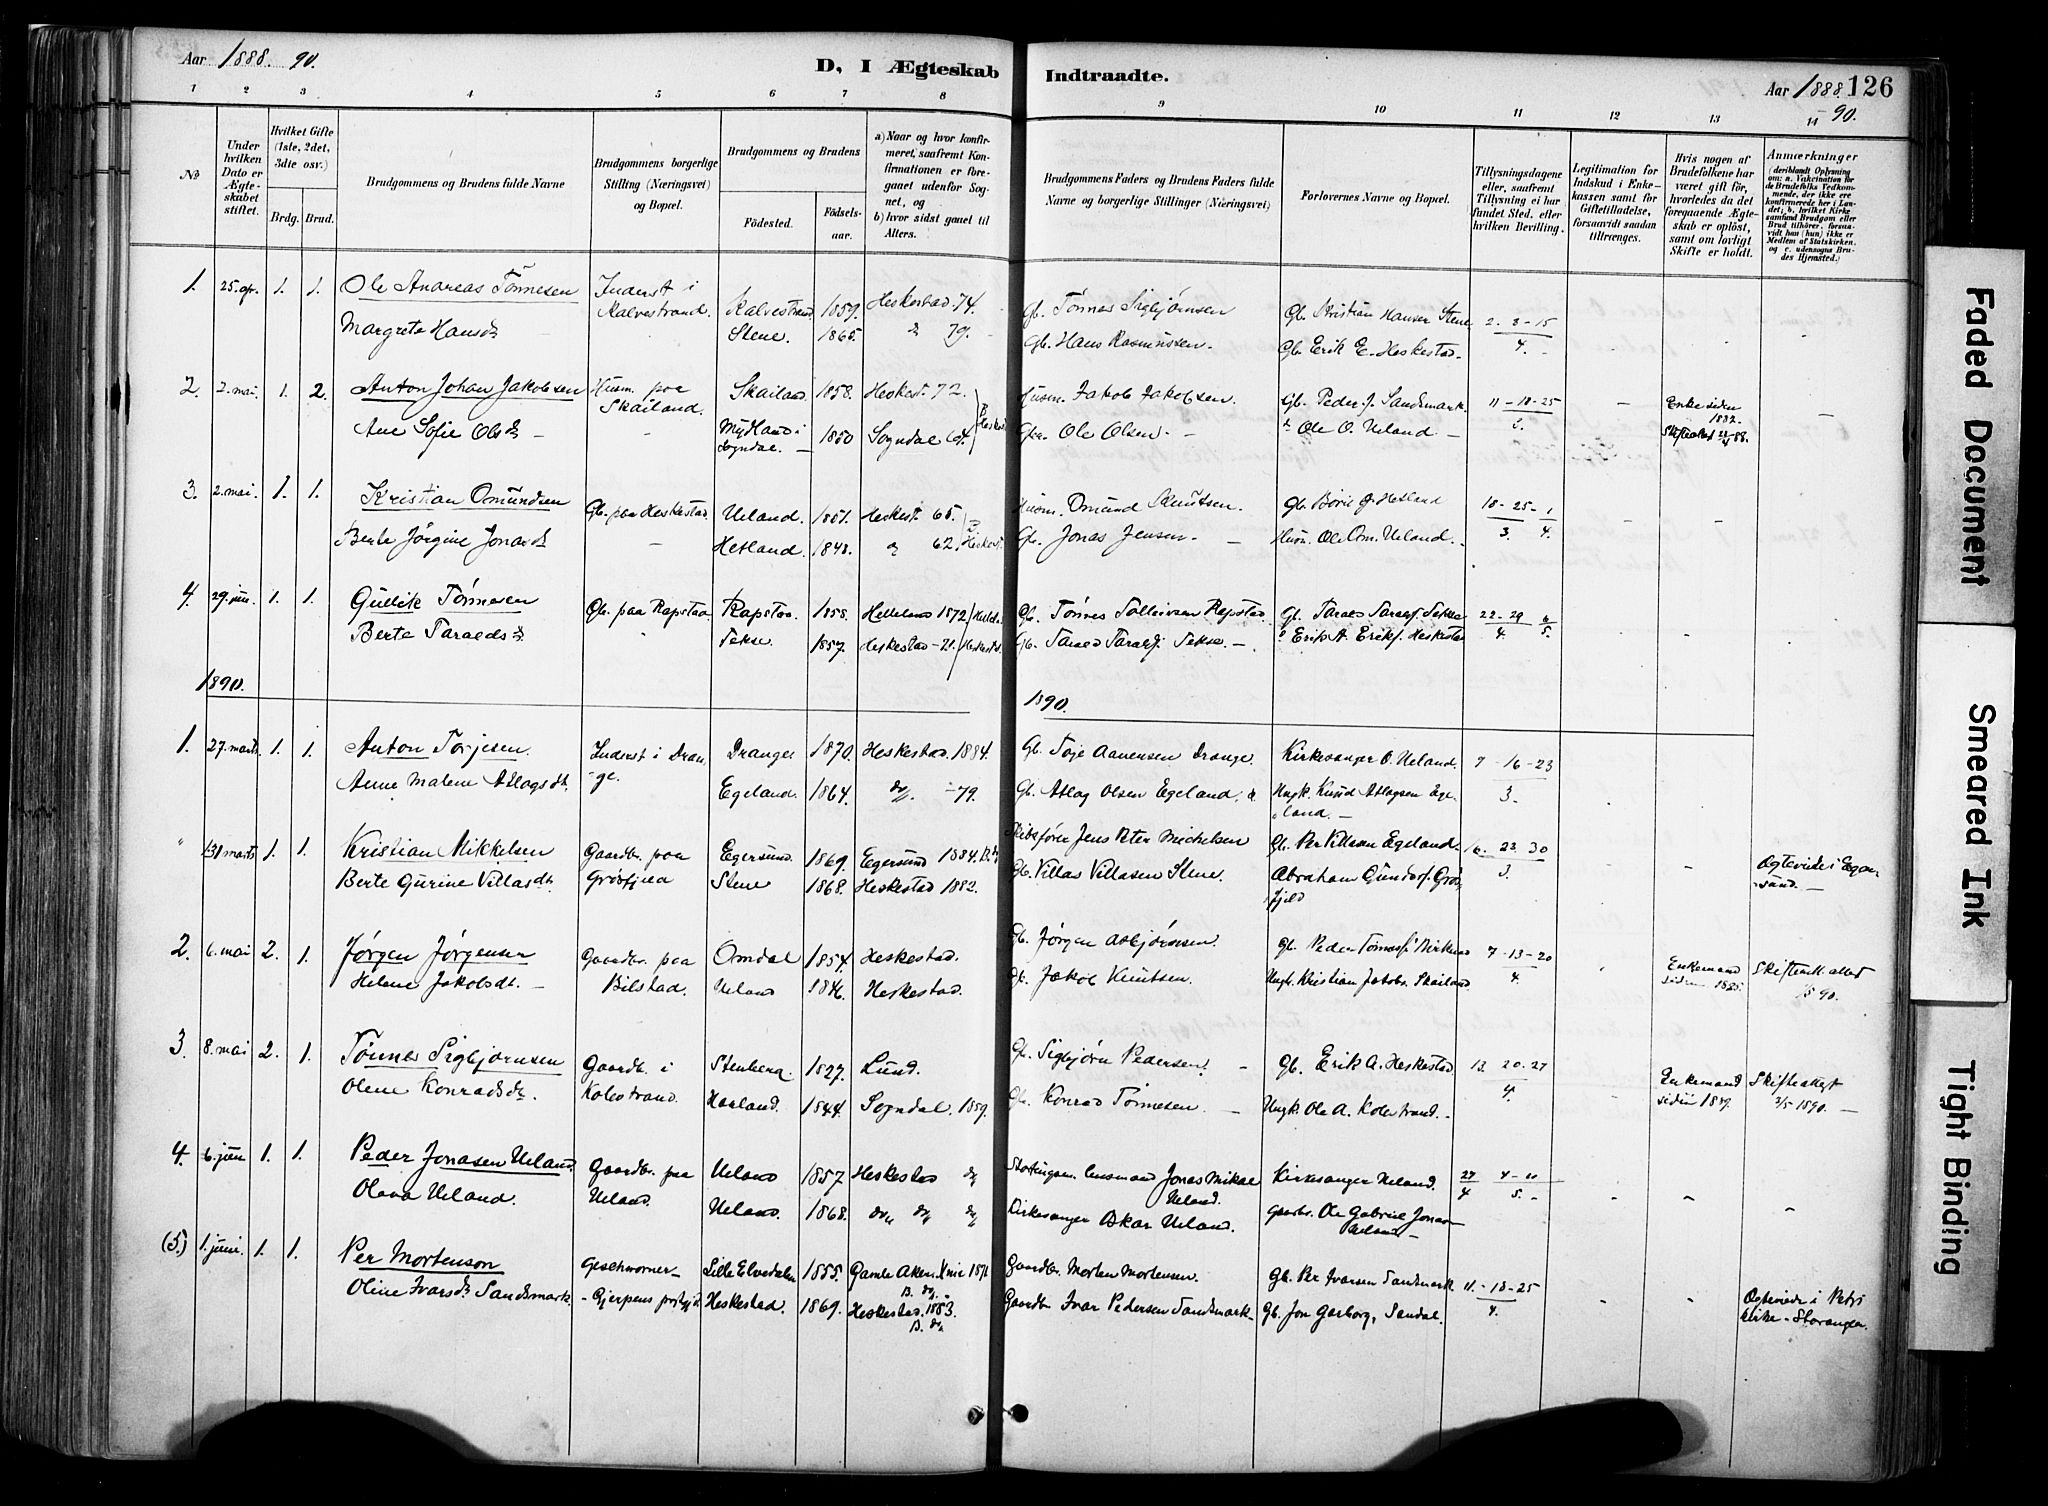 Aar 1888. 90.
D, I Ægteskab
Indtraadte.
Aar 1888 126
90.
1 2 3 4 5 6 7 8 9 10 11 12 13 14
No
Under hvilken Dato er Ægteskabet stiftet.
Hvilket Gifte (1ste, 2det, 3die osv.)
Brdg. Brud.
Brudgommens og Brudens fulde Navne
Brudgommens borgerlige Stilling (Næringsvei) og Bopæl.
Brudgommens og Brudens
Födested. Födsels-aar.
a) Naar og hvor konfirmeret, saafremt Konfirmationen er foregaaet udenfor Sognet, og
b) hvor sidst gaaet til Alters.
Brudgommens Faders og Brudens Faders fulde Navne og borgerlige Stillinger (Næringsvei)
Forlovernes Navne og Bopæl.
Tillysningsdagene eller, saafremt Tillysning ei har fundet Sted, efter hvilken Bevilling.
Legitimation for Indskud i Enkekassen samt for Giftetilladelse, forsaavidt saadan tiltrænges.
Hvis nogen af Brudefolkene har været gift før, hvorledes da det foregaaende Ægteskab er oplöst, samt om lovligt Skifte er holdt.
Anmærkninger (deriblandt Oplysning om: a. Vakcination for de Brudefolks Vedkommende, der ikke ere konfirmerede her i Landet; b. hvilket Kirkesamfund Brudgom eller Brud tilhører, forsaavidt han (hun) ikke er Medlem af Statskirken, og c. udensogns Brudes Hjemsted.)
1. 25. apr. 1. 1. Ole Andreas Tönnesen Inderst i Kalvestrand. Kalvestrand 1859. Heskestad 74. Gb. Tönnes Sigbjörnsen Gb. Kristian Hansen Stene 2. 8-15
Margrete Hansd. Stene. 1865. 79. Gb. Hans Rasmussen. Gb. Erik E. Heskestad. 4.
2. 2. mai. 1. 2. Anton Johan Jakobsen Husm. paa Skailand. Skailand 1858. Heskest. 72 Husm. Jakob Jakobsen. Gb. Peder J. Sandsmark. 11-18-25 Enke siden
Ane Sofie Olsd. Mydland i Sogndal. 1850 Sogndal Ole Olsen. Ole O. Ueland. 3.
3. 2. mai. 1. 1. Kristian Omundsen Gb. paa Heskestad. Ueland. 1851. Heskest. 65. Husm. Omund Knutsen. Gb. Börie Hetland 18-25-1
Berte Jörgine Jonasd. Hetland. 1848. 62. Heskest. Gb. Jonas Jensen Husm. Ole Om. Ueland. 3. 4.
4. 29. juni. 1. 1. Gullik Tönnesen Gb. paa Rapstad. Rapstad. 1858. Helleland 1872 Gb. Tönnes Tolleivsen Rapstad. Gb. Tarald Taralds. Tekse 22-29 6
Berte Taraldsd. Tekse. 1857. Heskestad Gb. Tarald Taralds. Tekse. Erik A. Eriks. Heskestad 4. 5.
1890.
1890.
1. 27. marts. 1. 1. Anton Torjesen. Inderst i Drange. Drange. 1870. Heskestad. 1884. Gb. Toje Aanensen Drange. Kirkesanger O. Ueland. 7-16-23
Anne Malene Atlagsdt. Egeland. 1864. 79. Gb. Atlag Olsen Egeland. Ungk. Knud Atlagsen Egeland. 3.
" 31 marts 1. 1. Kristian Mikkelsen Gaardbr. paa Grøsfjeld Egersund. 1869. Egersund 1884. Skibsfører Jens Peter Michelsen Gb. Per Villasen Egeland. 16. 23 30
Berte Gurine Villasdt. Stene 1868. Heskestad 1882. Gb. Villas Villasen Stene. Abraham Gundersen Grøsfjeld 3. Ægteviede i Egersund.
2. 6. mai 2. 1. Jørgen Jørgensen Gaardbr. paa Bilstad. Omdal 1854. Heskestad. Gb. Jørgen Asbjørnsen. Gb. Peder Tönnes. Birkeland 7-13-20 Enkemand siden Skifteatt.
Helene Jakobsdt. Ueland 1846. Heskestad. Gb. Jakob Knutsen. Ungk. Kristian Jakobs. Skailand. 4. 90.
3. 8. mai 2. 1. Tönnes Sigbjørnsen Gaardbr. i Kolestrand. Stenberg. 1827. Lund. Gb. Sigbjørn Pedersen. Gb. Erik A. Heskestad 13 20. 27 Enkemand siden Skifteattest
Olene Konradsdt. Haaland. 1844. Sogndal. 1859. Gb. Konrad Tönnesen. Ungk. Ole A. Kolestrand. 4. 2/5 1890.
4. 6. juni 1. 1. Peder Jonasen Ueland. Gaardbr. paa Ueland. Ueland 1857 Heskestad Stortingsm. lensmand Jonas Mikal Ueland. Kirkesanger Ueland. 27 4-11
Olava Ueland. Ueland. 1868. Kirkesanger Oskar Ueland. Gaardbr. Ole Gabriel Jonas. Ueland 4 5.
(5.) 1. juni. 1. 1. Per Mortenson Geschworner Gjerpens Lille Elvedalen 1855. Gamle Aker. Xnia 1871 Gaardbr. Morten Mortensen. Gb. Per Ivarsen Sandsmark 11-18-25
Oline Ivarsdt. Sandsmark. Heskestad. 1869. Heskestad. 1883. Gaardbr. Ivar Pedersen Sandsmark. Gb. Jon Garborg, Sandal. 4. Ægteviede i Petri kirke Stavanger.
Faded Document
Smeared Ink
Tight Binding